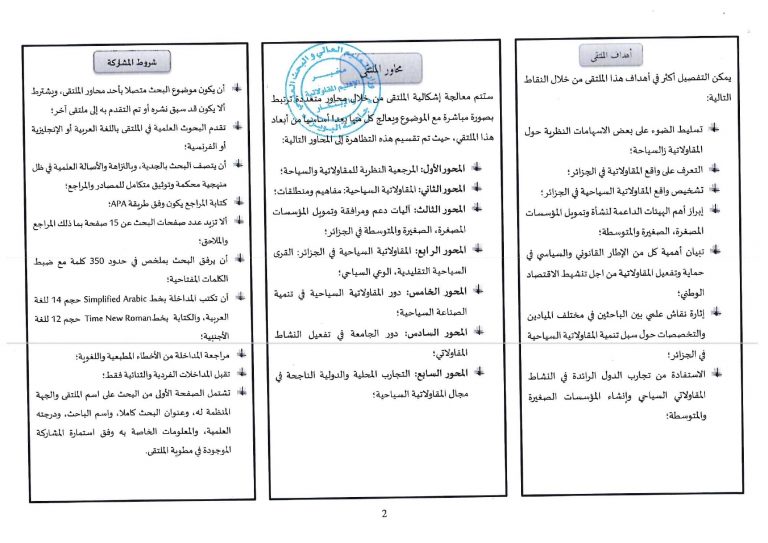 أهداف الملتقى
يمكن التفصيل أكثر في أهداف هذا الملتقى من خلال النقاط
التالية:
تسليط الضوء على بعض الاسهامات النظرية حول
المقاولاتية زالسياحة؛
التعرف على واقع المقاولاتية في الجزائر؛
تشخيص واقع المقاولاتية السياحية في الجزائر؛
إبراز أهم الهيئات الداعمة لنشأة وتمويل المؤسسات
المصغرة، الصغيرة والمتوسطة؛
تبيان أهمية كل من الإطار القانوني والسياسي في
حماية وتفعيل المقاولاتية من اجل تنشيط الاقتصاد
الوطني؛
إثارة نقاش علمي بين الباحثين في مختلف الميادين
والتخصصات حول سبل تنمية المقاولاتية السياحية
في الجزائر؛
الاستفادة من تجارب الدول الرائدة في النشاط
المقاولاتي السياحي وإنشاء المؤسسات الصغيرة
والمتوسطة؛
محاور الملتقى
ستتم معالجة إشكالية الملتقى من خلال محاور متعددة ترتبط
بصورة مباشرة مع الموضوع ويعالج كل منها بعدا أساسيا من أبعاد
هذا الملتقى، حيث تم تقسيم هذه التظاهرة إلى المحاور التالية:
المحور الأول: المرجعية النظرية للمقاولاتية والسياحة؛
المحور الثاني: المقاولاتية السياحية: مفاهيم ومنطلقات؛
المحور الثالث: آليات دعم ومرافقة وتمويل المؤسسات
المصغرة، الصغيرة والمتوسطة في الجزائر؛
المحور الرابع: المقاولاتية السياحية في الجزائر: القرى
السياحية التقليدية، الوعي السياحي؛
المحور الخامس: دور المقاولاتية السياحية في تنمية
الصناعة السياحية؛
المحور السادس: دور الجامعة في تفعيل النشاط
المقاولاتي؛
المحور السابع: التجارب المحلية والدولية الناجحة في
مجال المقاولاتية السياحية؛
شروط المشاركة
أن يكون موضوع البحث متصلا بأحد محاور الملتقى، ويشترط
ألا يكون قد سبق نشره أو تم التقدم به إلى ملتقى آخر؛
تقدم البحوث العلمية في الملتقى باللغة العربية أو الإنجليزية
أو الفرنسية؛
أن يتصف البحث بالجدية، وبالنزاهة والأصالة العلمية في ظل
منهجية محكمة وتوثيق متكامل للمصادر والمراجع؛
كتابة المراجع يكون وفق طريقة APA؛
ألا تزيد عدد صفحات البحث عن 15 صفحة بما ذلك المراجع
والملاحق؛
أن يرفق البحث بملخص في حدود 350 كلمة مع ضبط
الكلمات المفتاحية؛
أن تكتب المداخلة بخط Simplified Arabic حجم 14 للغة
العربية، والكتابة بخط Time New Roman حجم 12 للغة
الأجنبية؛
مراجعة المداخلة من الأخطاء المطبعية واللغوية؛
تقبل المداخلات الفردية والثنائية فقط؛
تشتمل الصفحة الأولى من البحث على اسم الملتقى والجهة
المنظمة له، وعنوان البحث كاملا، واسم الباحث، ودرجته
العلمية، والمعلومات الخاصة به وفق استمارة المشاركة
الموجودة في مطوية الملتقى.
2